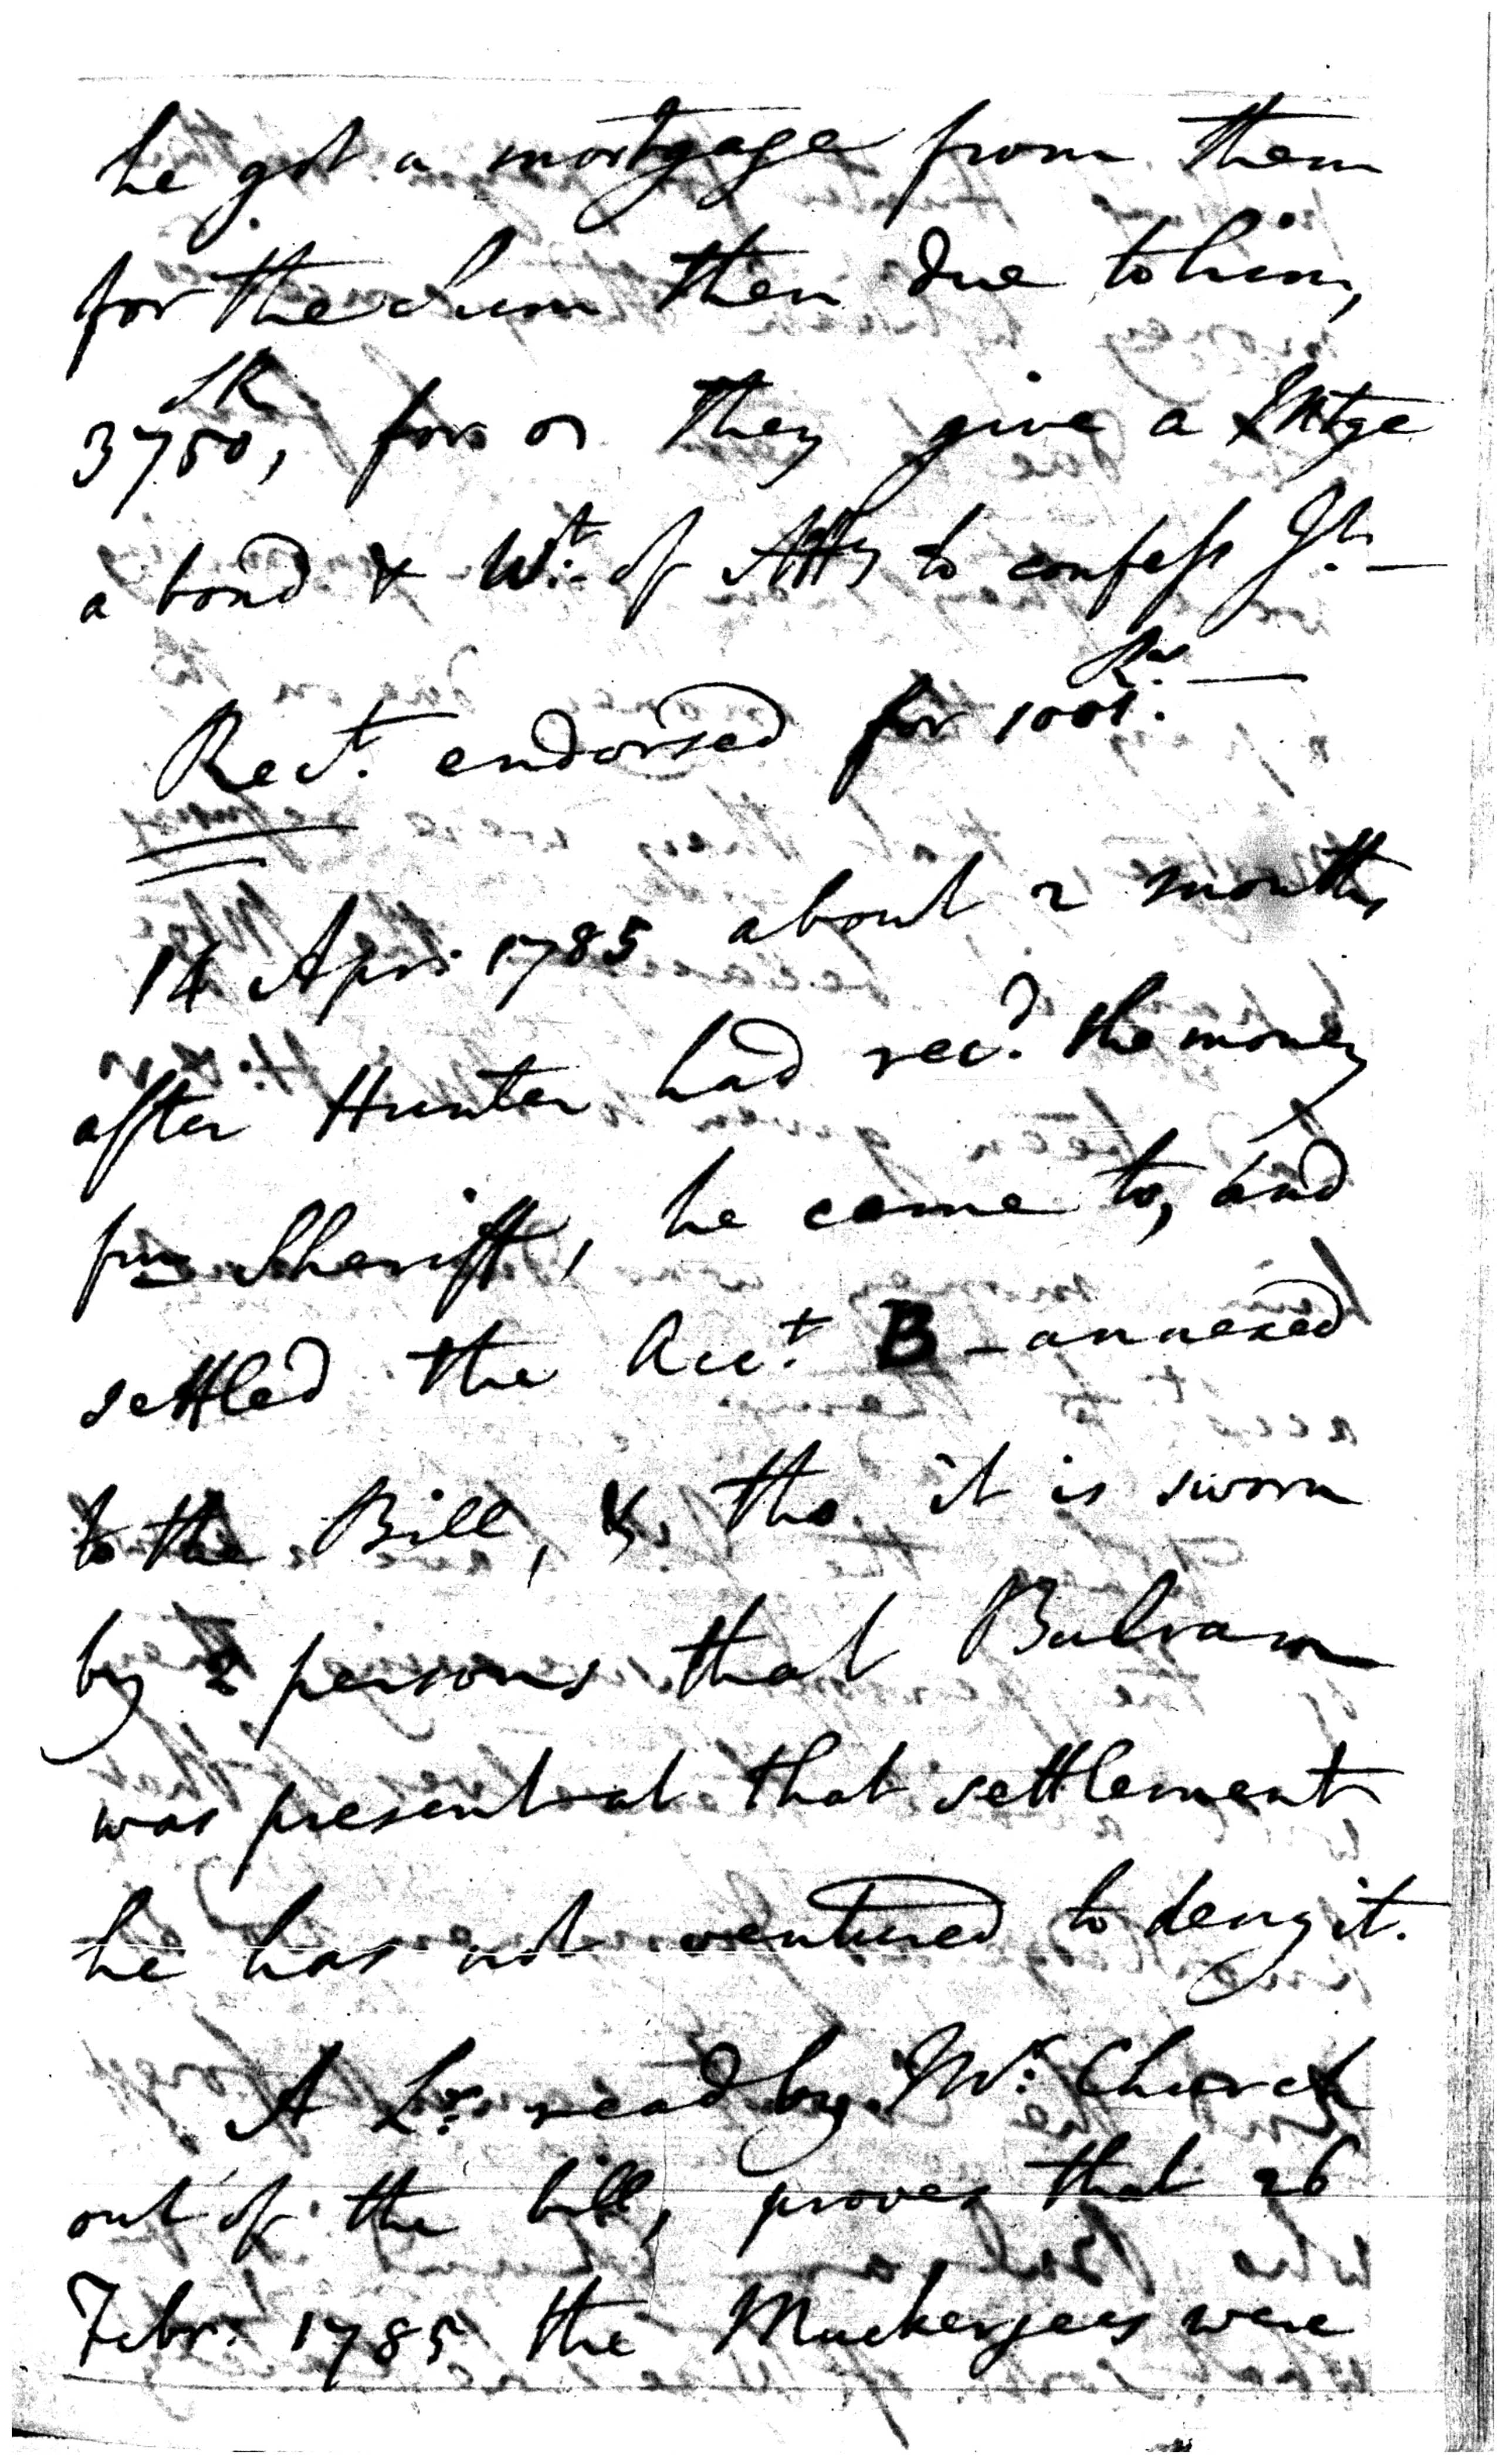 he got a mortgage from them
for the sum then due to him,
SR
3750, for or they give a Mtge
a bond & Wt. of Atty to confess Jt. —
Rs. —
Rect. endorsed for 1001.
14 Apr: 1785 about 2 months
after Hunter had recd. the money
fm Sheriff, he came to, and
settled the Acct. B - annexed
to the Bill, & tho it is sworn
by 2 persons that Bulram
was present at that settlement
he has not ventured to deny it.
A Lr. read by Mr. Church
out of the bill, proves that 26
Febr: 1785 the Muckerjees were